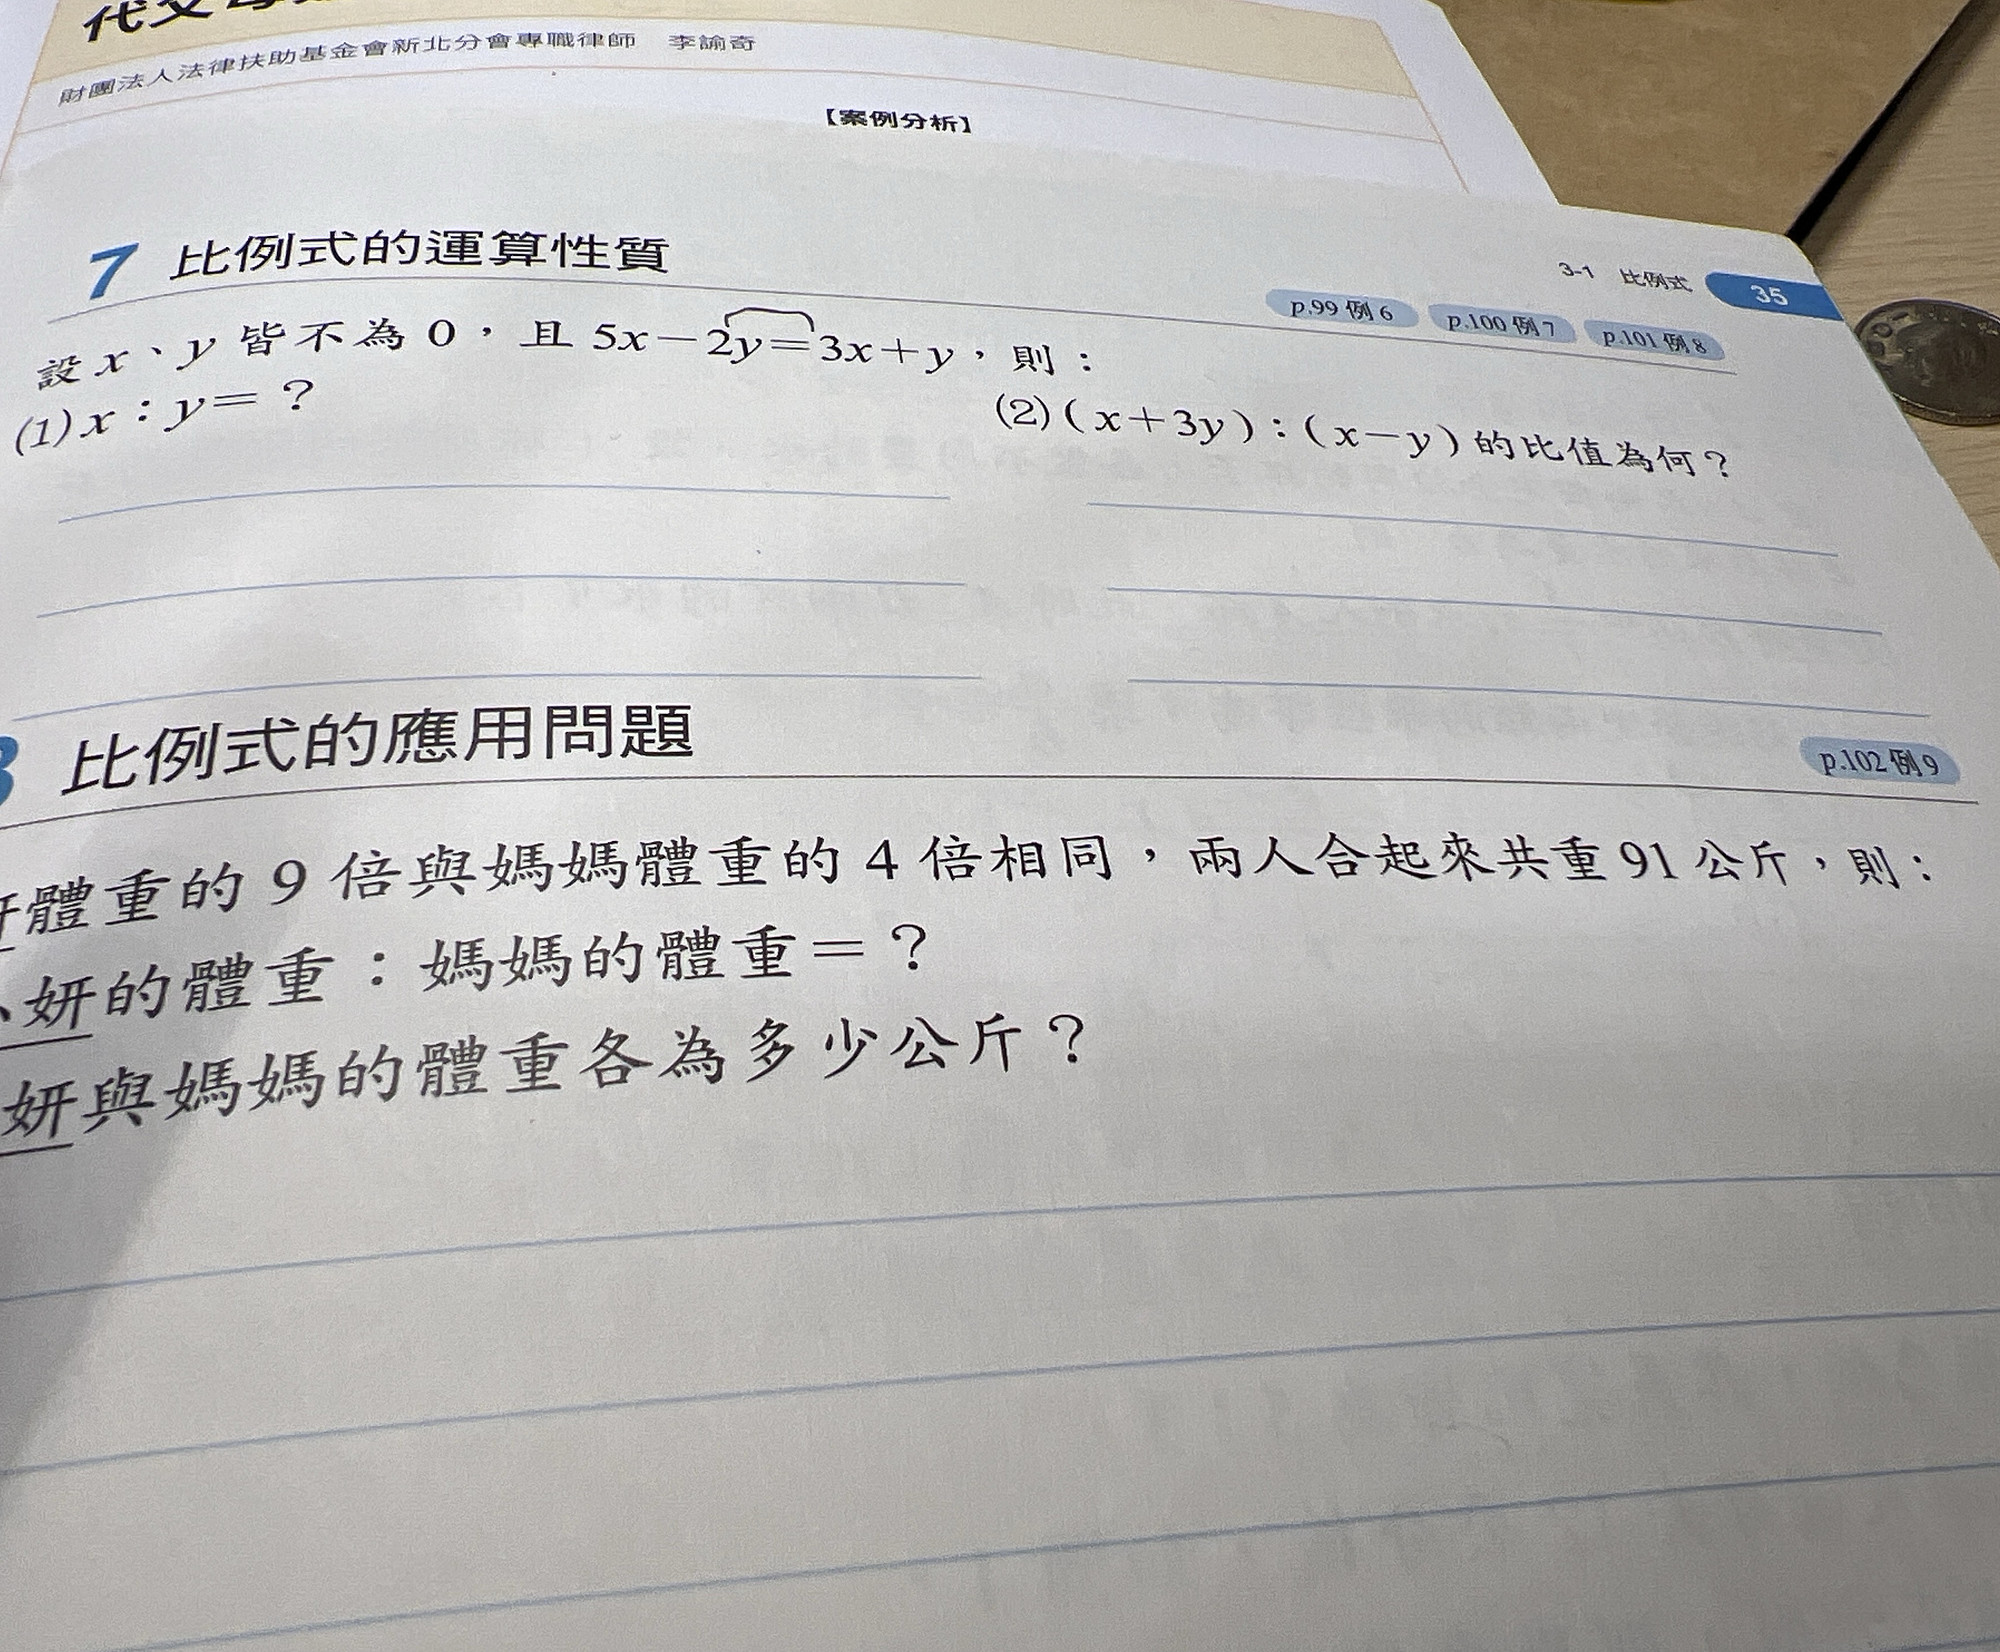 財團法人法律扶助基金會新北分會專職律師 李諭奇
【案例分析】
3-1 比例式 35
7 比例式的運算性質
p.99 例 6 p.100 例 7 p.101 例 8
設 x、y 皆不為 0,且 5x-2y=3x+y,則:
(1) x:y=?
(2) ( x+3y ):( x-y ) 的比值為何?
比例式的應用問題
p.102 例 9
體重的 9 倍與媽媽體重的 4 倍相同,兩人合起來共重 91 公斤,則:
妍的體重:媽媽的體重=?
妍與媽媽的體重各為多少公斤?